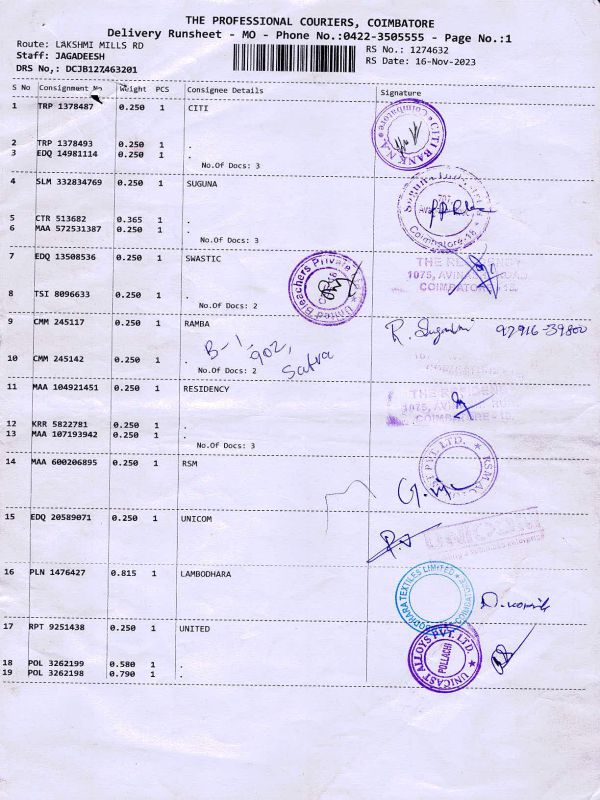 THE PROFESSIONAL COURIERS, COIMBATORE
Delivery Runsheet - MO - Phone No.:0422-3505555 - Page No.:1
Route: LAKSHMI MILLS RD
RS No.: 1274632
Staff: JAGADEESH
RS Date: 16-Nov-2023
DRS No,: DCJB127463201
S No Consignment No Weight PCS Consignee Details Signature
1 TRP 1378487 0.250 1 CITI
CITI BANK N.A. Coimbatore
2 TRP 1378493 0.250 1 .
3 EDQ 14981114 0.250 1 .
No.Of Docs: 3
4 SLM 332834769 0.250 1 SUGUNA
Coimbatore-18
5 CTR 513682 0.365 1 .
6 MAA 572531387 0.250 1 .
No.Of Docs: 3
7 EDQ 13508536 0.250 1 SWASTIC
United Bleachers Private Ltd
1075, AVINASHI ROAD
COIMBATORE-18.
8 TSI 8096633 0.250 1 .
No.Of Docs: 2
9 CMM 245117 0.250 1 RAMBA
92916-39800
B-1, 902,
10 CMM 245142 0.250 1 .
No.Of Docs: 2
11 MAA 104921451 0.250 1 RESIDENCY
12 KRR 5822781 0.250 1 .
13 MAA 107193942 0.250 1 .
No.Of Docs: 3
14 MAA 600206895 0.250 1 RSM
PVT. LTD.
15 EDQ 20589071 0.250 1 UNICOM
16 PLN 1476427 0.815 1 LAMBODHARA
TEXTILES LIMITED
17 RPT 9251438 0.250 1 UNITED
UNICAST ALLOYS PVT. LTD.
POLLACHI
18 POL 3262199 0.580 1 .
19 POL 3262198 0.790 1 .